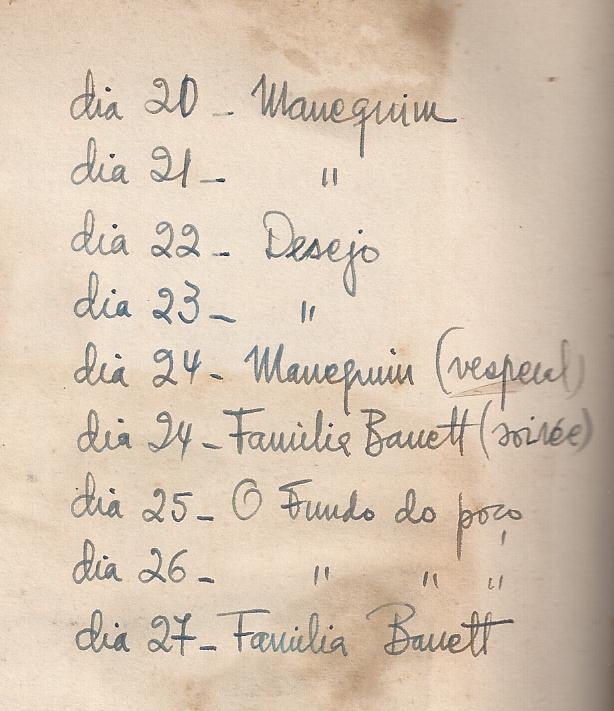 dia 20 - Manequim
dia 21 - "
dia 22 - Desejo
dia 23 - "
dia 24 - Manequim (vesperal)
dia 24 - Familia Barrett (soirée)
dia 25 - O Fundo do poço
dia 26 - " " "
dia 27 - Familia Barrett